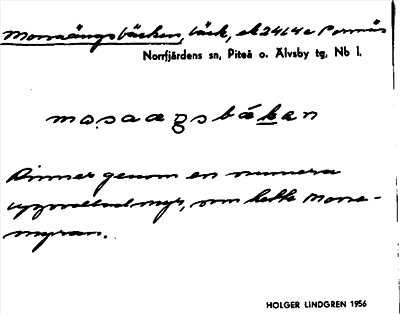 Morraängsbäcken, bäck, ek 24 L 4 e Porsnäs
Norrfjärdens sn, Piteå o. Älvsby tg, Nb l.
mosaagsbäkan
Rinner genom en numera
uppodlad myr, som hette Morra-
myran.
HOLGER LINDGREN 1956